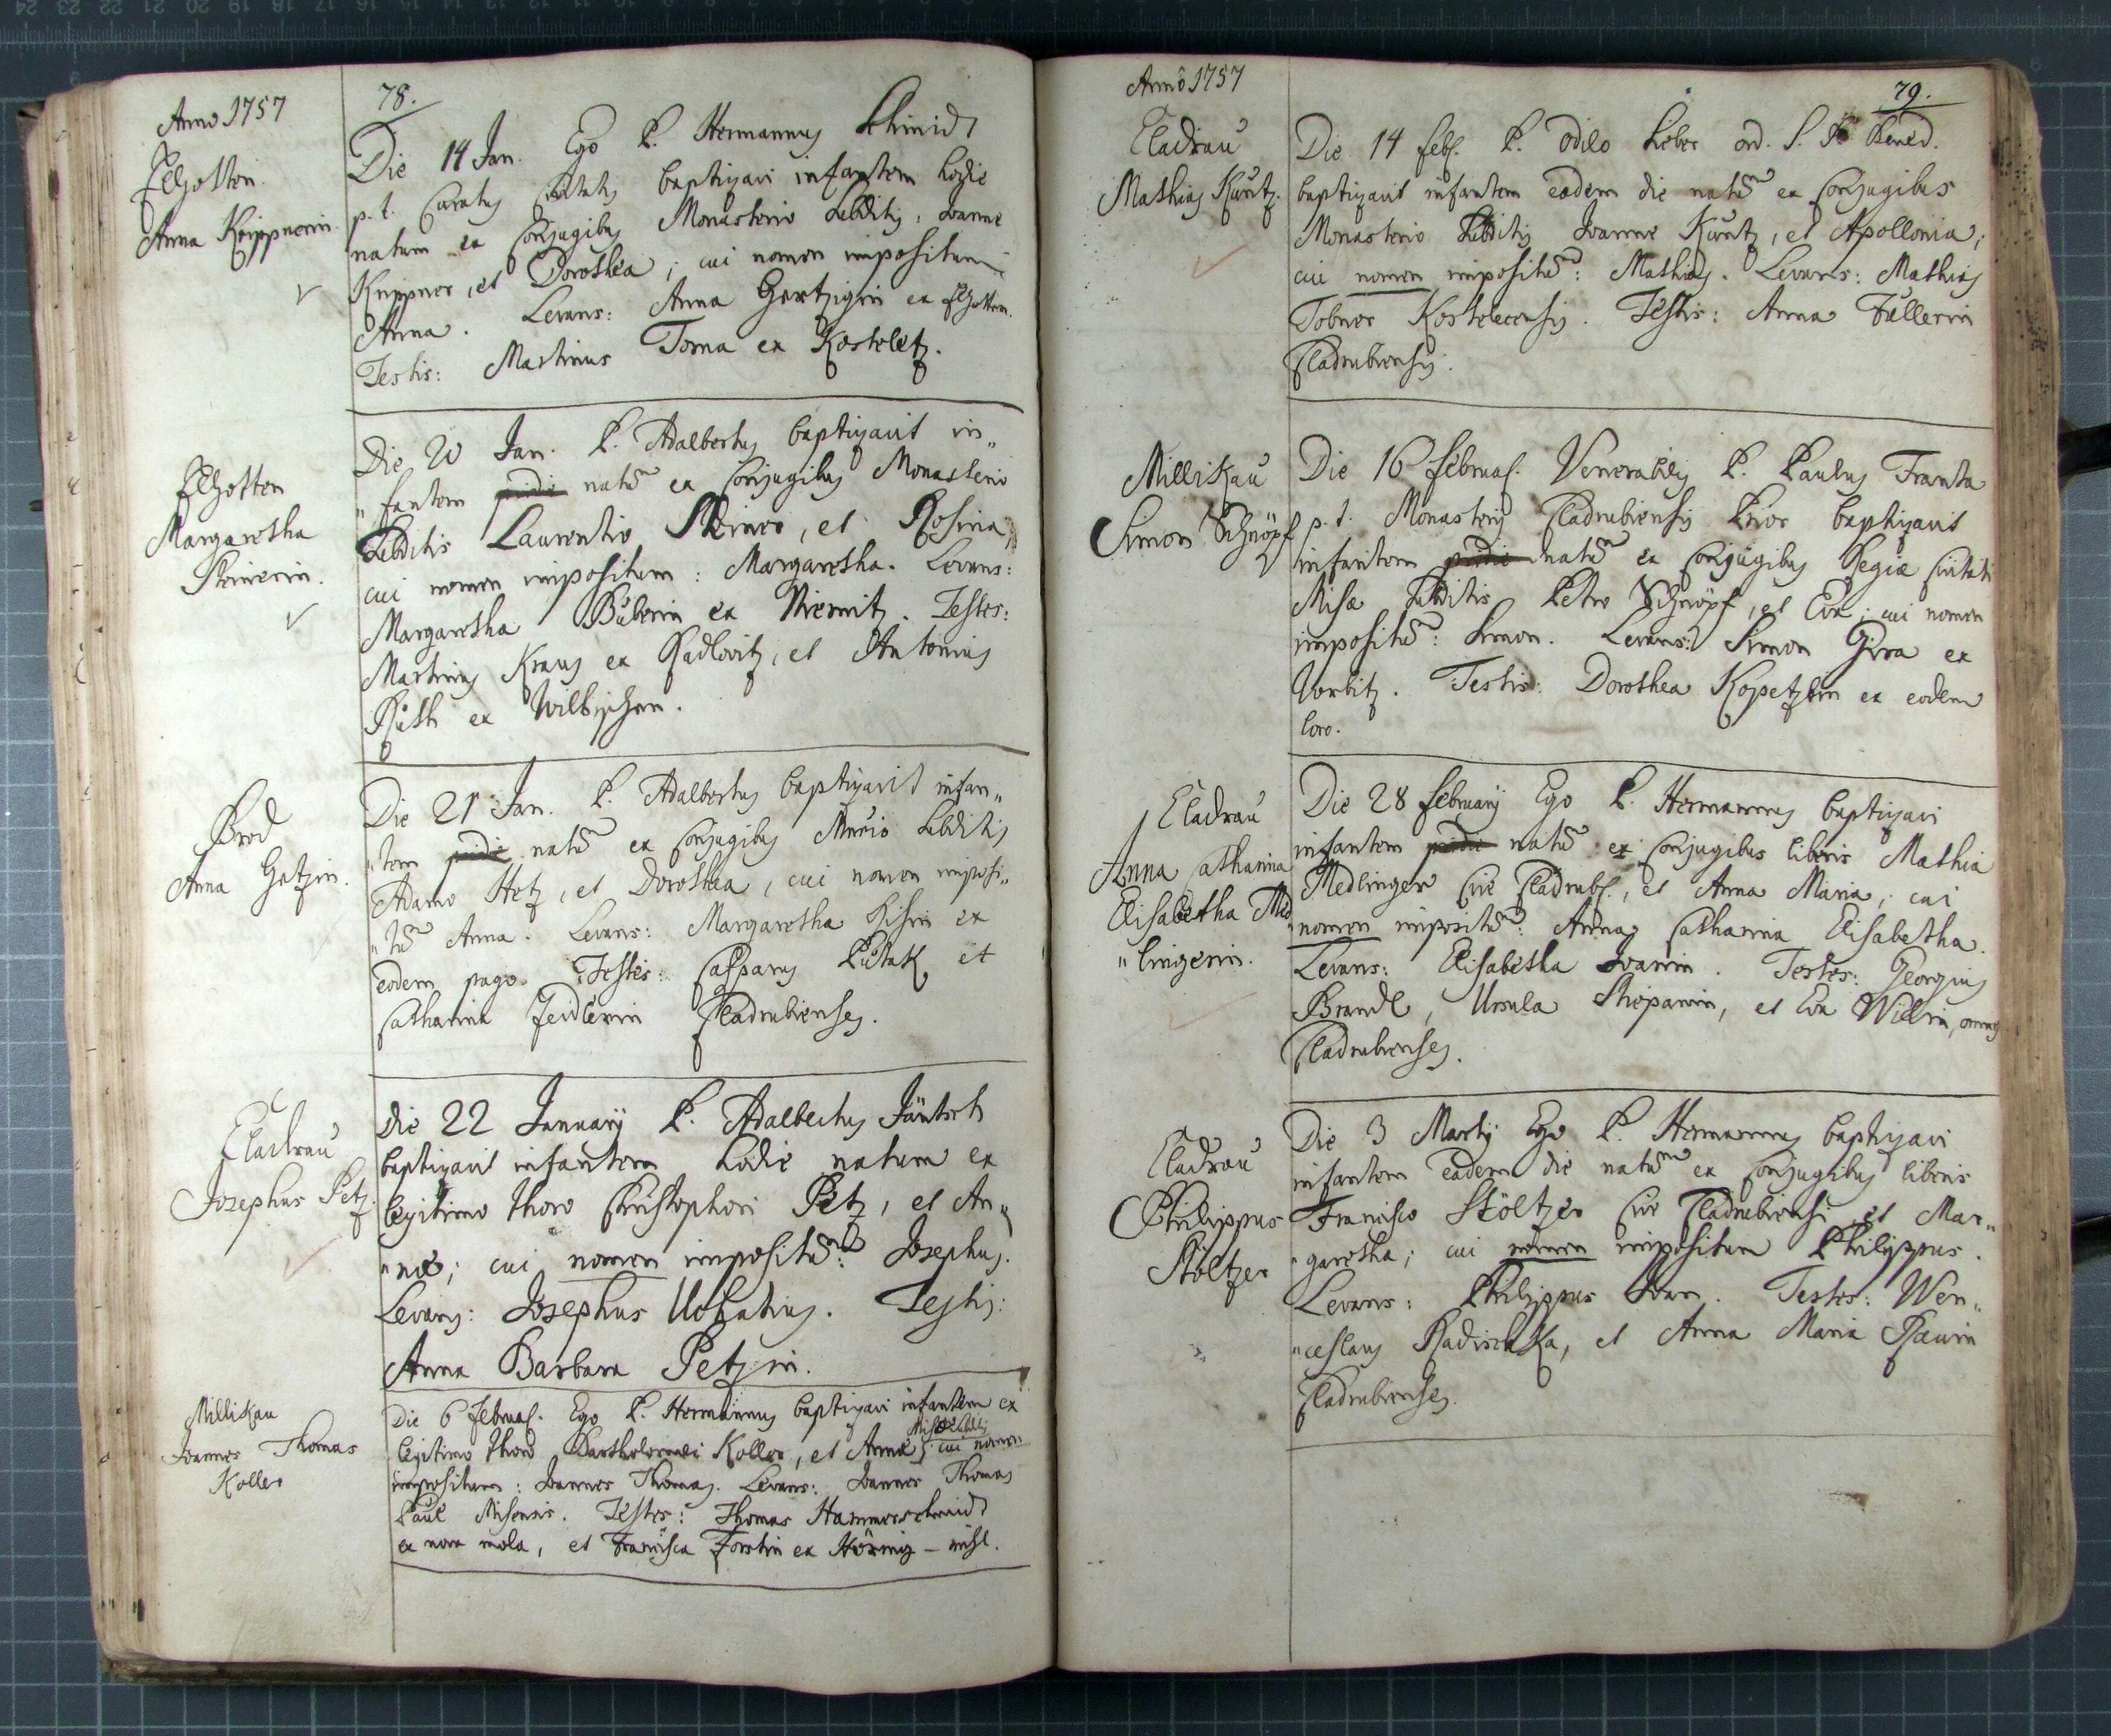 Anno 1757
78.
Elhotten.
Anna Knippnerin.
Die 14 Jan. Ego P. Hermannus Schmidt
p. t. Curatus baptizavi infantem hodie
natum ex Conjugibus Monasterio Subditis: Joanne
Knippner, et Dorothea; cui nomen impositum:
Anna. Levans: Anna Gertzigin ex Elhotten.
Testis: Martinus Toma ex Kosteletz.
Elhotten
Margaretha
Steinerin.
Die 20 Jan. P. Adalbertus baptizavit in„
„fantem pridie natũ ex Conjugibus Monasterio
Subditis Laurentio Steiner, et Rosina;
cui nomen impositum: Margaretha. Levans:
Margaretha Bŭberin ex Niemitz. Testes:
Martinus Kraus ex Radlovitz, et Antonius
Rŭth ex Wilbischen.
Brod
Anna Getzin.
Die 21 Jan. P. Adalbertus baptizavit infan„
„tem pridie natũ ex Conjugibus Subditis
Adamo Hetz, et Dorothea, cui nomen imposi„
„tũ Anna. Levans: Margaretha ex
eodem pago. Testes: Casparus et
Catharina Zeidlerin Cladrubienses.
Cladrau
Josephus Petz.
Die 22 Januarij P. Adalbertus Jäntsch
baptizavit infantem hodie natum ex
legitimo thoro Christophori Petz, et An„
„næ; cui nomen impositũ: Josephus.
Levans: Josephus Uchatius. Testis:
Anna Barbara Petzin.
Millikau
Joannes Thomas
Koller
Die 6 Februar. Ego P. Hermannus baptizavi infantem ex
legitimo thoro Bartholomæi Koller, et Annæ; cui nomen
impositum: Joannes Thomas. Levans: Joannes Thomas
Paul Misensis. Testes: Thomas Hammerschmidt
ex nova mola, et Francisca Forstin ex - mihl.
Anno 1757
79.
Cladrau
Mathias Kŭntz.
Die 14 febr. P. Odilo Lieber ord. S. P. Bened.
baptizavit infantem eodem die natũ ex Conjugibus
Monasterio Subditis Joanne Kŭntz, et Apollonia;
cui nomen impositũ: Mathias. Levans: Mathias
Tobner Kostelecensis. Testis: Anna Fŭllerin
Cladrubiensis.
Millikau
Simon Schnöpf
Die 16 februar. Venerabilis P. Paulus Franta
p. t. Monasterij Cladrubiensis Prior baptizavit
infantem pridie natũ ex Conjugibus Regiæ Civitati
Misæ Subditis Petro Schnöpf, et Eva; cui nomen
impositũ: Simon. Levans: Simon Gira ex
Wurbitz. Testis: Dorothea Kopetzkin ex eodem
loco.
Cladrau
Anna Catharina
Elisabetha Med
„lingerin.
Die 28 february Ego P. Hermannus baptizavi
infantem pridie natũ ex Conjugibus liberis Mathia
Medlinger Cive Cladrub., et Anna Maria; cui
nomen impositũ: Anna Catharina Elisabetha.
Levans: Elisabetha Joannin. Testes: Georgius
Brandl, Ursula Stiepanin, et Eva Willin, omnes
Cladrubienses.
Cladrau
Philippus
Stöltzer
Die 3 Martij Ego P. Hermannus baptizavi
infantem eadem die natũ ex Conjugibus liberis
Francisco Stöltzer Cive Cladrubiensi et Mar„
„garetha; cui nomen impositum Philippus.
Levans: Philippus Joan. Testes: Wen„
„ceslaus Radischka, et Anna Maria
Cladrubienses.